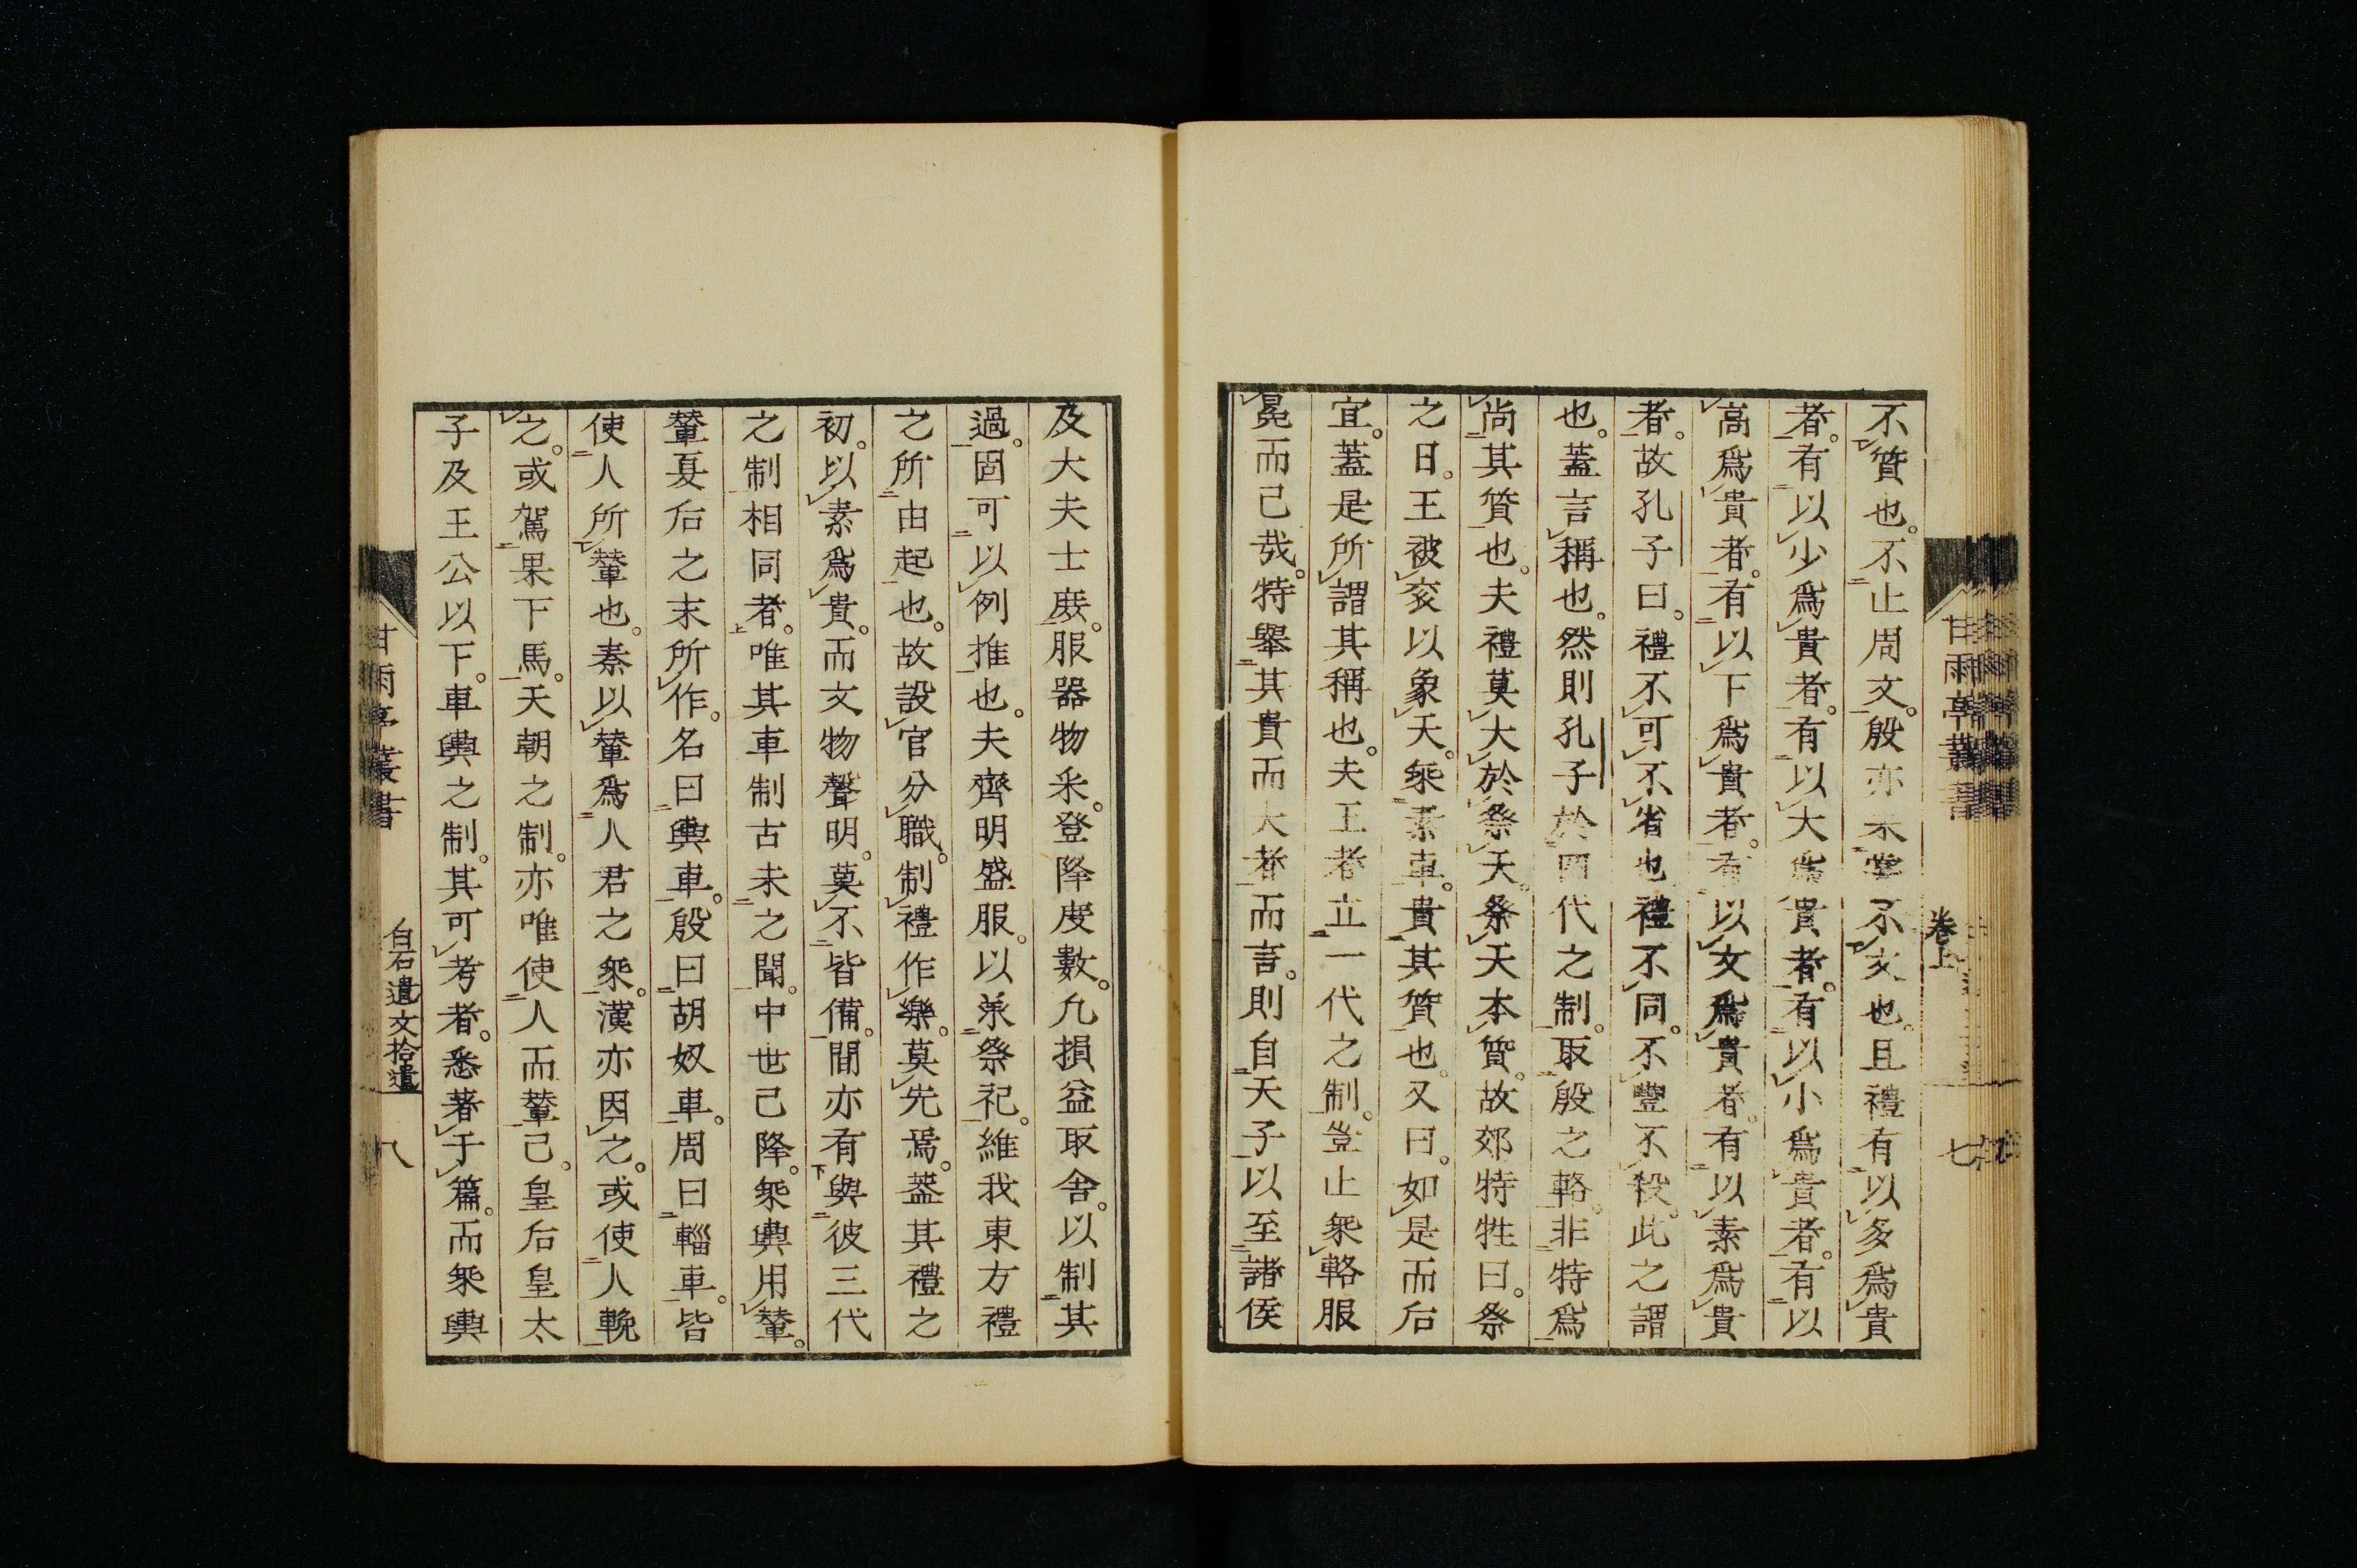 不質也。不止周文。殷亦未嘗不文也。且禮有以多爲貴
者。有以少爲貴者。有以大爲貴者。有以小爲貴者。有以
高爲貴者。有以下爲貴者。有以文爲貴者。有以素爲貴
者。故孔子曰。禮不可不省也禮不同。不豐不殺。此之謂
也。蓋言稱也。然則孔子於四代之制。取殷之輅。非特爲
尚其質也。夫禮莫大於祭天。祭天本質。故郊特牲曰。祭
之日。王被衮以象天。乗素車。貴其質也。又曰。如是而后
宜。蓋是所謂其稱也。夫王者立一代之制。豈止乗輅服
冕而已哉。特舉其貴而大者而言。則自天子以至諸侯
卷上
七
及大夫士庶。服器物采。登降度數。凢損益取舍。以制其
過。固可以例推也。夫齊明盛服。以承祭祀。維我東方禮
之所由起也。故設官分職。制禮作樂。莫先焉。葢其禮之
初。以素爲貴。而文物聲明。莫不皆備。間亦有與彼三代
之制相同者。唯其車制古未之聞。中世已降。乗輿用輦。
輦夏后之末所作。名曰輿車。殷曰胡奴車。周曰輜車。皆
使人所輦也。秦以輦爲人君之乗。漢亦因之。或使人輓
之。或駕果下馬。天朝之制。亦唯使人而輦已。皇后皇太
子及王公以下。車輿之制。其可考者。悉著于篇。而乗輿
甘雨亭叢書
白石遺文拾遺
八